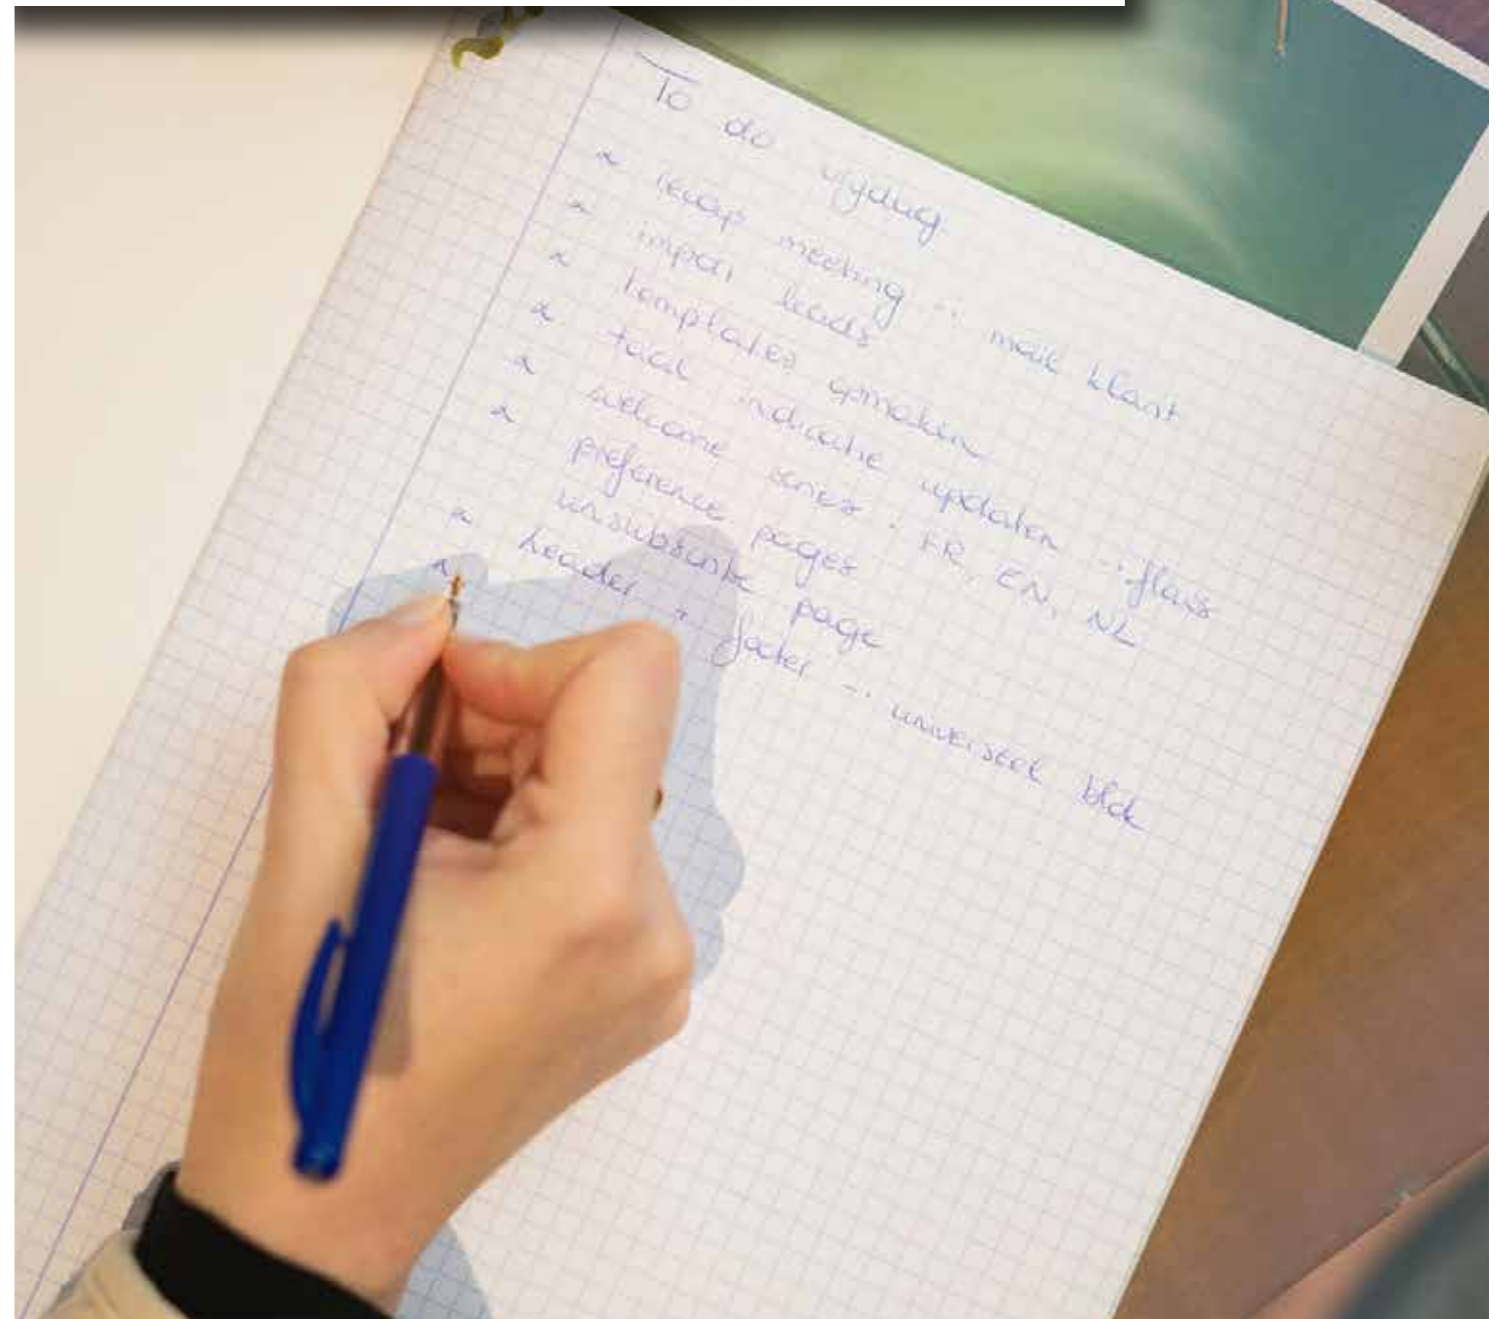 To do vrijdag
x recap meeting -> mail klant
x import leads
x templates opmaken
x taal indicatie updaten -> flows
x welcome series : FR, EN, NL
x preference pages
unsubscribe page
x header + footer -> universeel blok
x